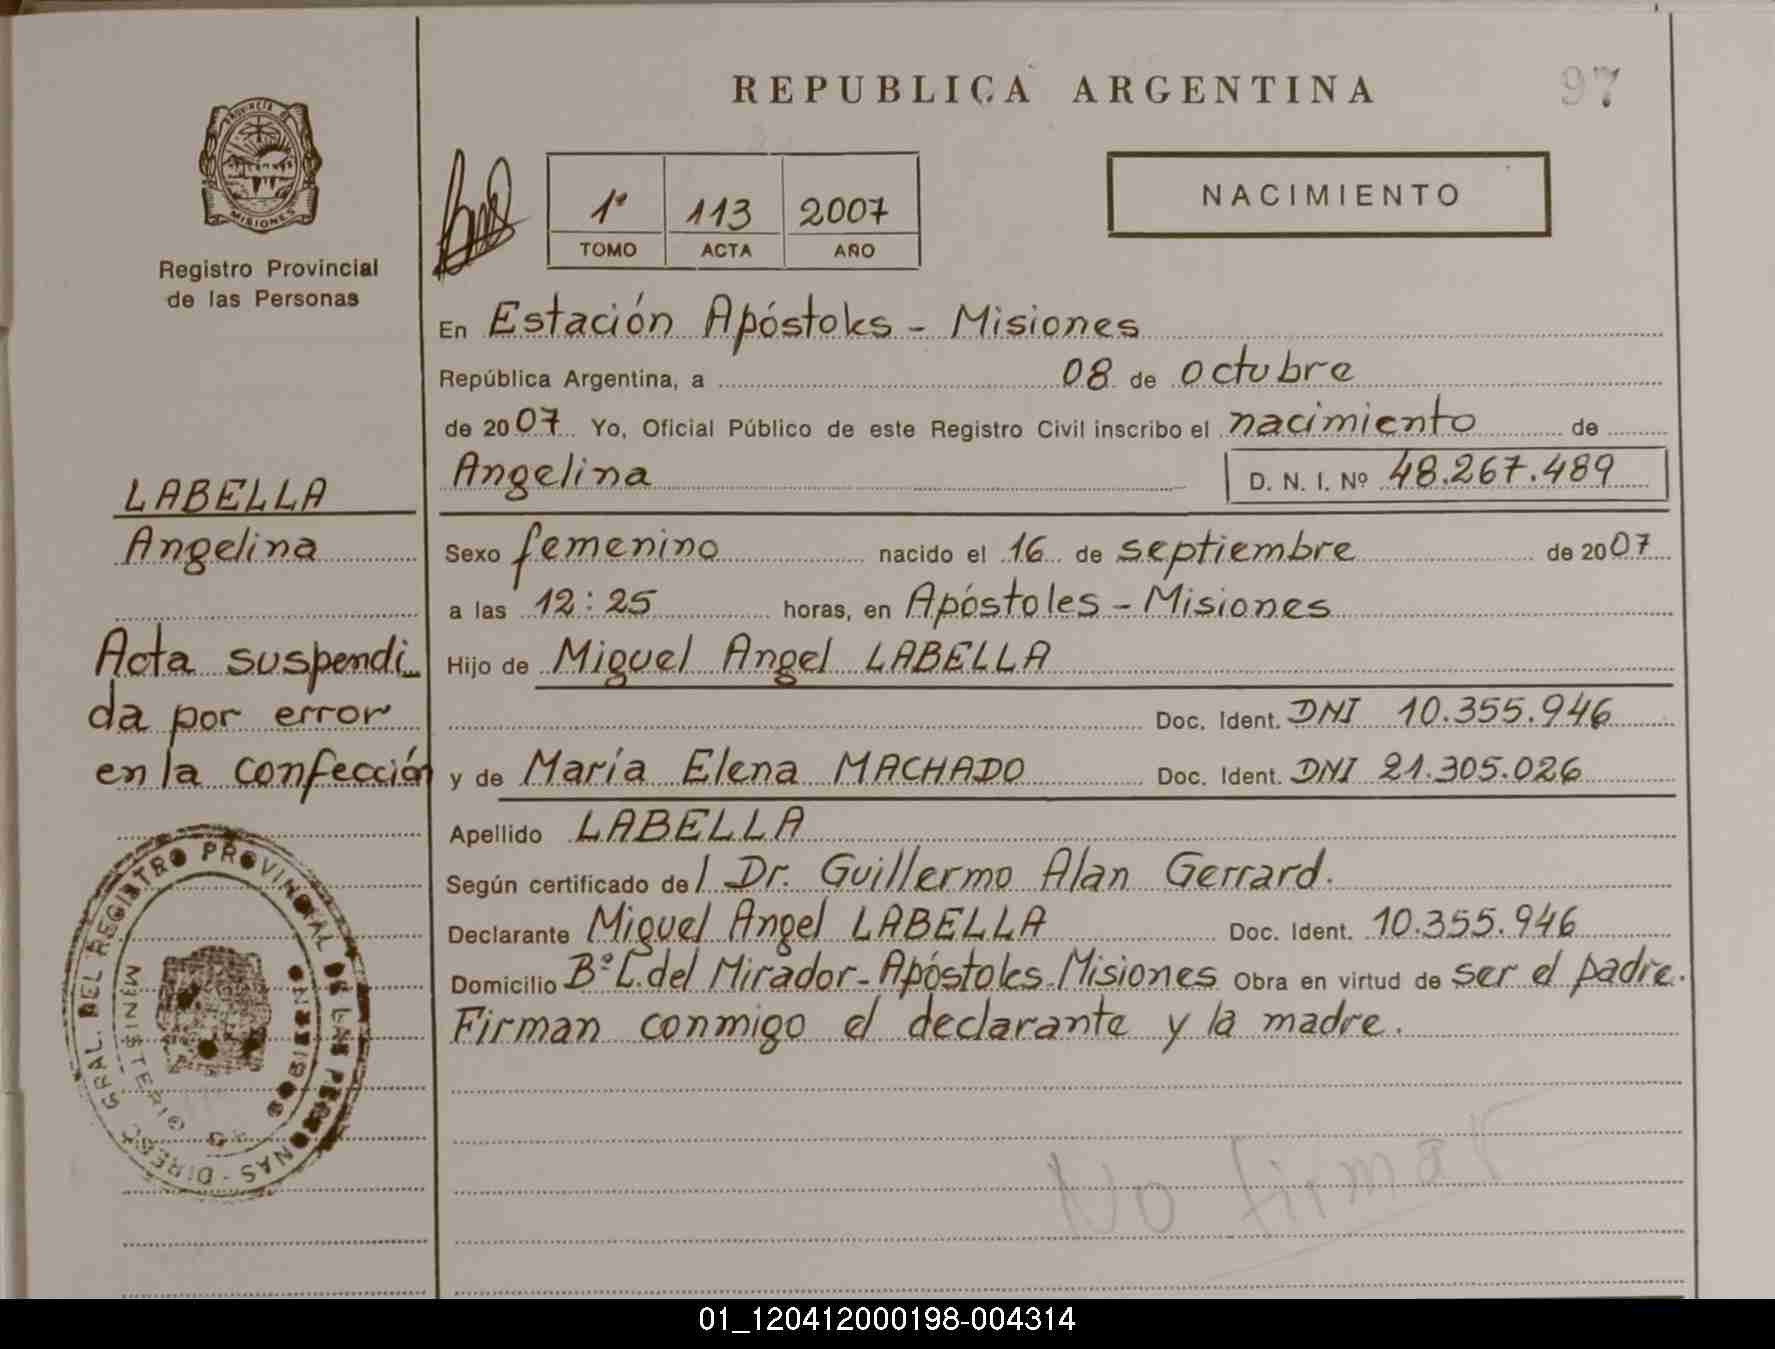 REPUBLICA ARGENTINA
97
PROVINCIA DE
MISIONES
Registro Provincial
de las Personas
1º 113 2007
TOMO ACTA AÑO
NACIMIENTO
En Estación Apóstoles - Misiones
República Argentina, a 08 de octubre
de 2007 Yo, Oficial Público de este Registro Civil inscribo el nacimiento de
Angelina D. N. I. Nº 48.267.489
LABELLA
Angelina
Sexo femenino nacido el 16 de septiembre de 2007
a las 12:25 horas, en Apóstoles - Misiones
Hijo de Miguel Angel LABELLA
Doc. Ident. DNI 10.355.946
y de María Elena MACHADO Doc. Ident. DNI 21.305.026
Acta suspendi_
da por error
en la confección
Apellido LABELLA
Según certificado del Dr. Guillermo Alan Gerrard.
Declarante Miguel Angel LABELLA Doc. Ident. 10.355.946
Domicilio Bº L. del Mirador - Apóstoles - Misiones Obra en virtud de ser el padre.
Firman conmigo el declarante y la madre.
DIREC. GRAL. DEL REGISTRO PROVINCIAL DE LAS PERSONAS
MINISTERIO
No firmar
01_120412000198-004314